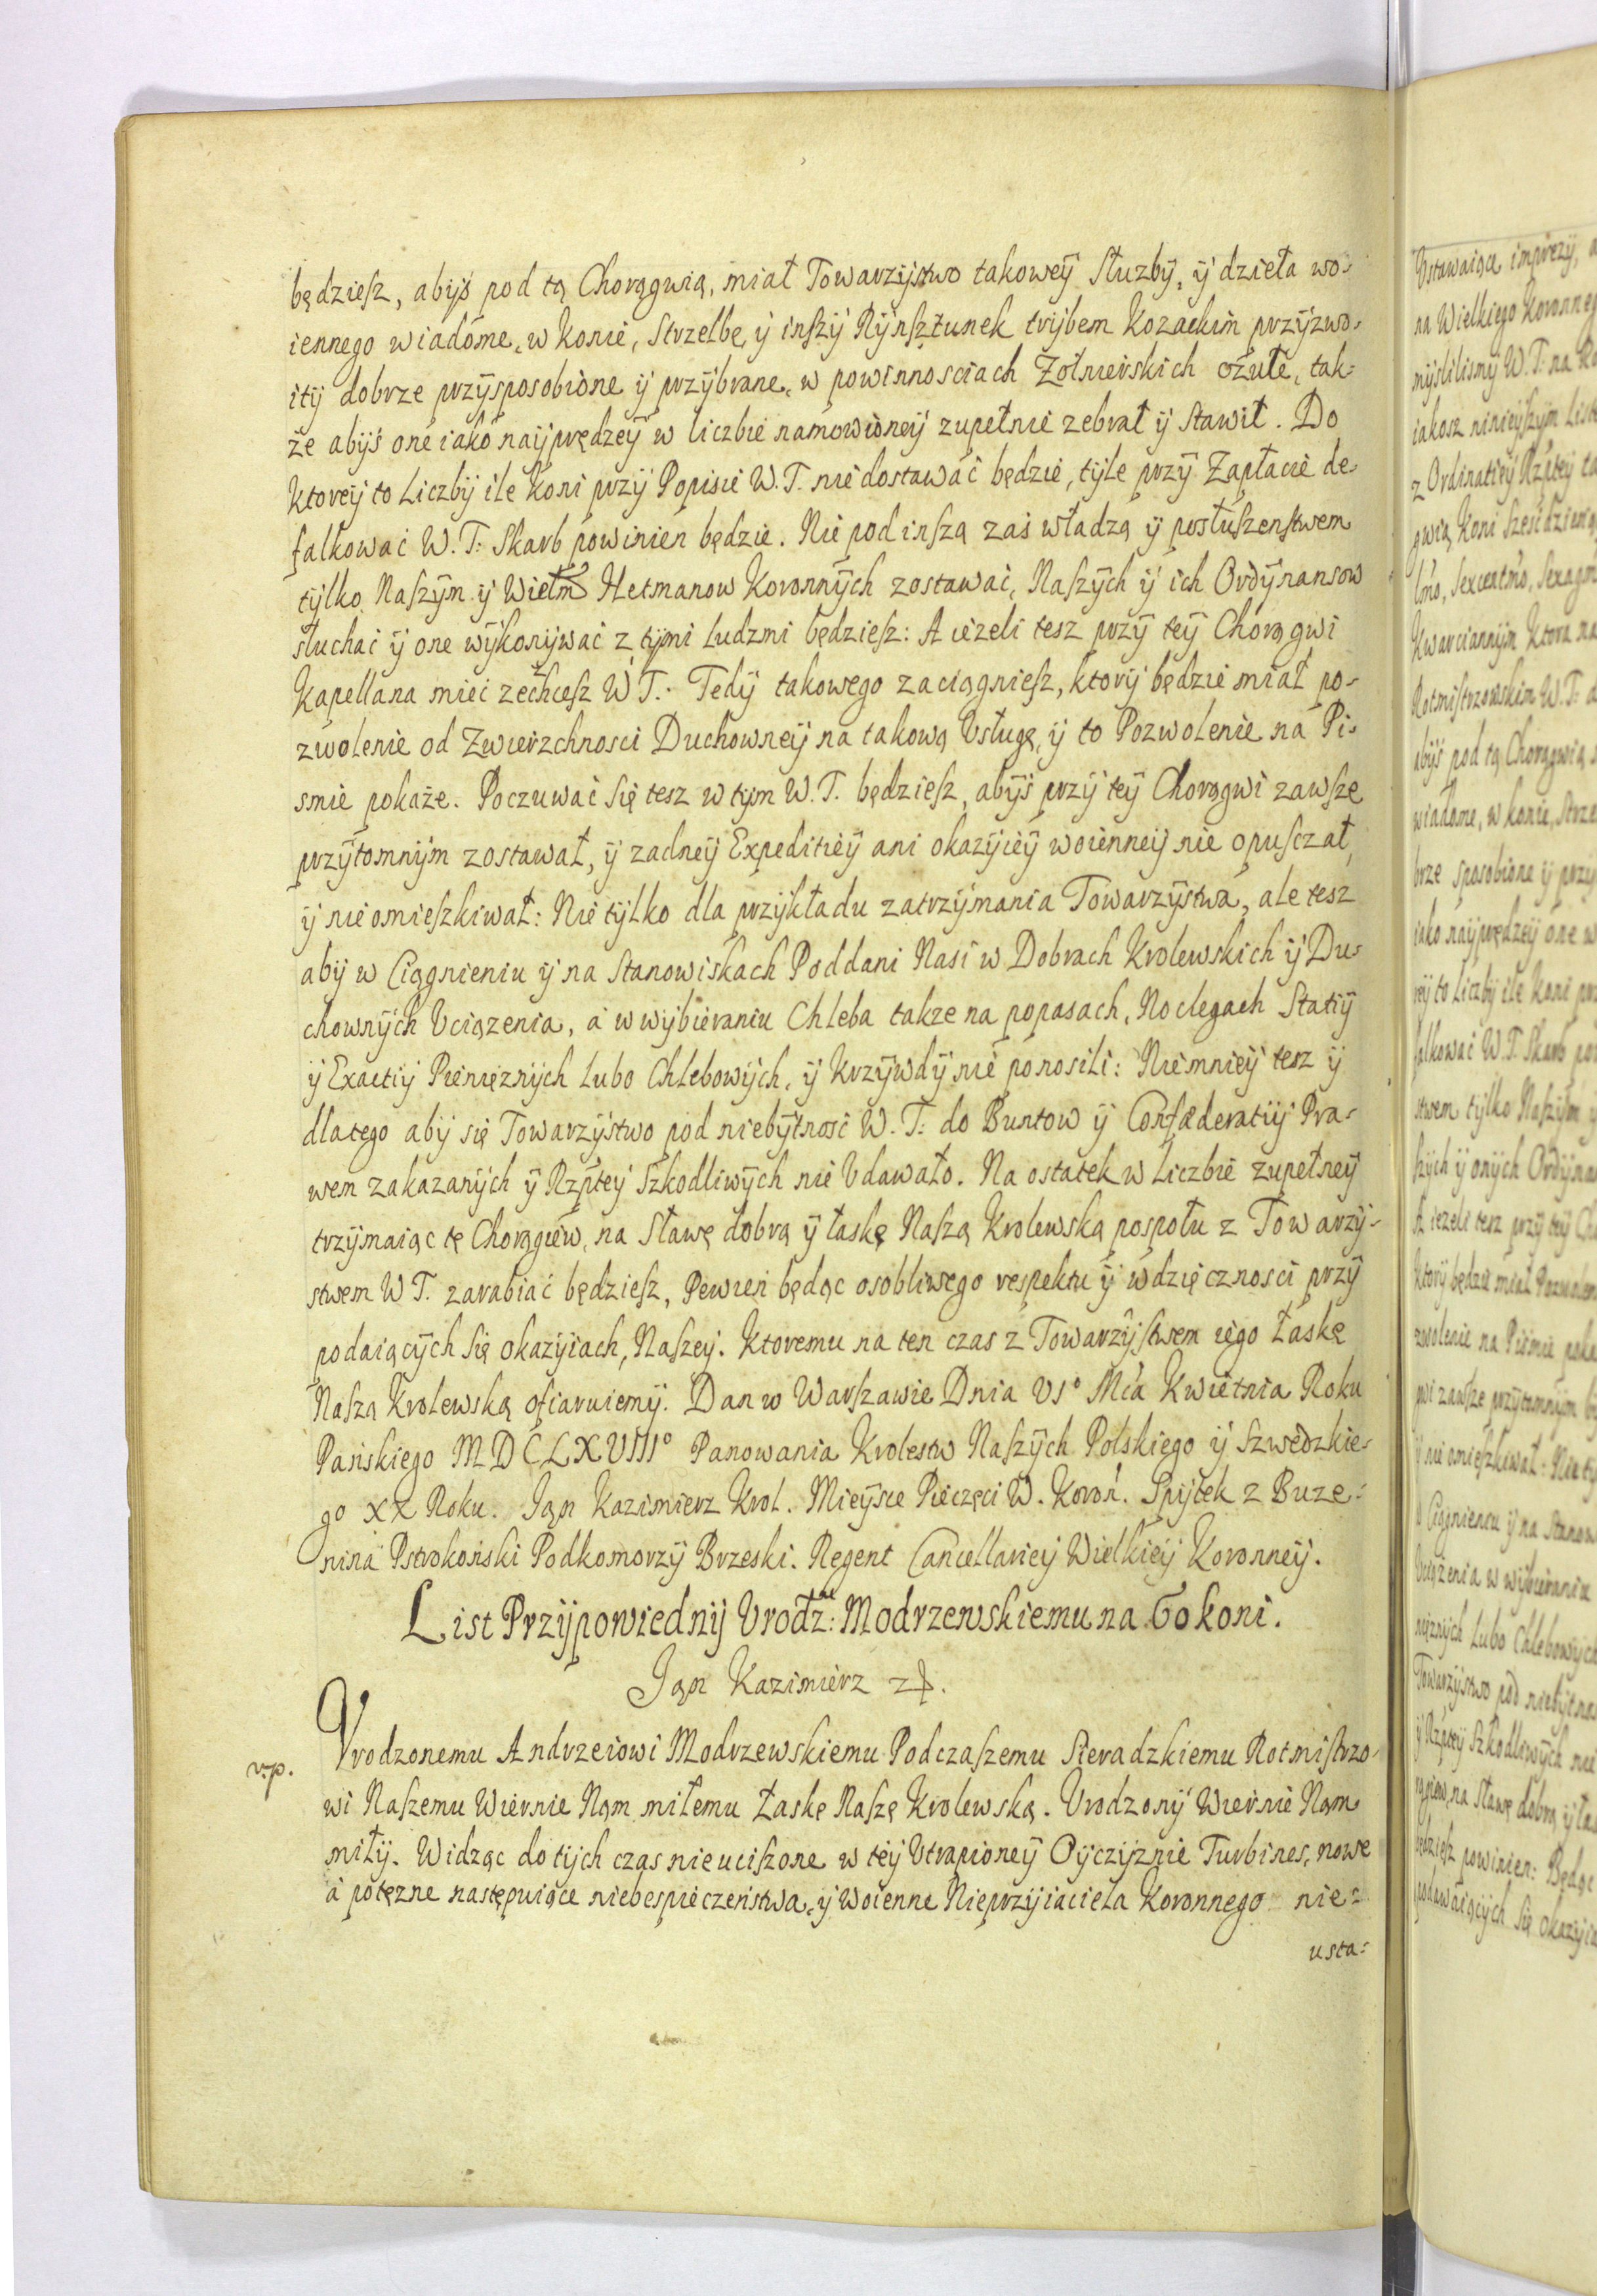 będziesz, abyś pod tą Chorągwią, miał Towarzystwo takowey Służby, y dzieła wo-
iennego wiadome, w konie, Strzelbę, y inszy Rynsztunek trybem Kozackim przyzwo-
ity dobrze przysposobione y przybrane, w powinnosciach Zołnierskich czułe, tak-
że abyś one iako nayprędzey w liczbie namowioney zupełnie zebrał y Stawił. Do
Ktorey to Liczby ile koni przy Popisie W.T. nie dostawać będzie, tyle przy Zapłacie de-
falkować W.T: Skarb powinien będzie. Nie pod inszą zaś władzą y posłuszenstwem
tylko Naszym y Wielm Hetmanow Koronnych zostawać, Naszych y ich Ordynansow
słuchać y one wykonywać z tymi Ludzmi będziesz: A ieżeli tesz przy tey Chorągwi
Kapellana mieć zechcesz W T. Tedy takowego zaciągniesz, ktory będzie miał po-
zwolenie od Zwierzchnosci Duchowney na takową Usługę, y to Pozwolenie na Pi-
smie pokaże. Poczuwać się tesz w tym W.T. będziesz, abyś przy tey Chorągwi zawsze
przytomnym zostawał, y zadney Expeditiey ani okazyiey woienney nie opusczał,
y nieomieszkiwał: Nie tylko dla przykładu zatrzymania Towarzystwa, ale tesz
aby w Ciągnieniu y na Stanowiskach Poddani Nasi w Dobrach Krolewskich y Du-
chownych Uciązenia, a w wybieraniu Chleba takze na popasach, Noclegach Statiy
y Exactiy Pieniężnych Lubo Chlebowych, y Krzywdy nie ponosili: Niemniey tesz y
dlatego aby się Towarzystwo pod niebytnosć W.T: do Buntow y Confæderatiy Pra-
wem zakazanych y Rzptey Szkodliwych nie Udawało. Na ostatek w Liczbie zupełney
trzymaiąc tę Chorągiew, na Sławę dobrą y łaskę Naszą Krolewską pospołu z Towarzy-
stwem W T. zarabiać będziesz, Pewien będąc osobliwego respektu y wdzięcznosci przy
podaiących się okazyiach, Naszey. Ktoremu na ten czas z Towarzystwem iego Łaskę
Naszą Krolewską ofiaruiemy. Dan w Warszawie Dnia VI° Mca Kwietnia Roku
Pańskiego MDCLXVIII° Panowania Krolestw Naszych Polskiego y Szwedzkie-
go XX Roku. Jan Kazimierz Krol. Mieysce Pieczęci W. Koroń. Spytek z Buze-
nina Pstrokoński Podkomorzy Brzeski. Regent Cancellariey Wielkiey Koronney.
List Przypowiedny Urodz: Modrzewskiemu na 60 koni.
Jan Kazimierz
v.p.
Urodzonemu Andrzeiowi Modrzewskiemu Podczaszemu Sieradzkiemu Rotmistrzo-
wi Naszemu Wiernie Nam miłemu Łaskę Naszę Krolewską. Urodzony Wiernie Nam
miły. Widząc do tych czas nie uciszone w tey Utrapioney Oyczyznie Turbines, nowe
a potęzne następuiące niebespieczeństwa, y Woienne Nieprzyiaciela Koronnego nie-
usta-